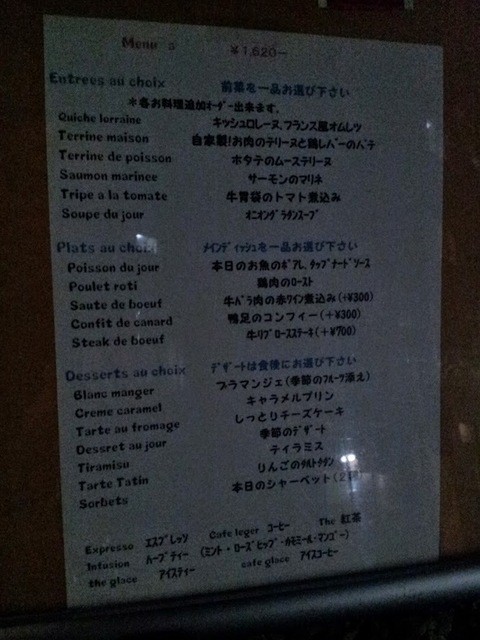 Menu a ￥1,620−
Entrees au choix 前菜を一品お選び下さい
＊各お料理追加オーダー出来ます。
Quiche lorraine キッシュロレーヌ、フランス風オムレツ
Terrine maison 自家製!お肉のテリーヌと鶏レバーのパテ
Terrine de poisson ホタテのムーステリーヌ
Saumon marinee サーモンのマリネ
Tripe a la tomate 牛胃袋のトマト煮込み
Soupe du jour オニオングラタンスープ
Plats au choix メインディッシュを一品お選び下さい
Poisson du jour 本日のお魚のポアレ、タップナードソース
Poulet roti 鶏肉のロースト
Saute de boeuf 牛バラ肉の赤ワイン煮込み(+¥300)
Confit de canard 鴨足のコンフィー(+¥300)
Steak de boeuf 牛リブロースステーキ(+¥700)
Desserts au choix デザートは食後にお選び下さい
Blanc manger ブラマンジェ(季節のフルーツ添え)
Creme caramel キャラメルプリン
Tarte au fromage しっとりチーズケーキ
Dessret au jour 季節のデザート
Tiramisu ティラミス
Tarte Tatin りんごのタルトタタン
Sorbets 本日のシャーベット(2
Expresso エスプレッソ Cafe leger コーヒー The 紅茶
Infusion ハーブティー (ミント・ローズヒップ・カモミール・マンゴー)
the glace アイスティー cafe glace アイスコーヒー